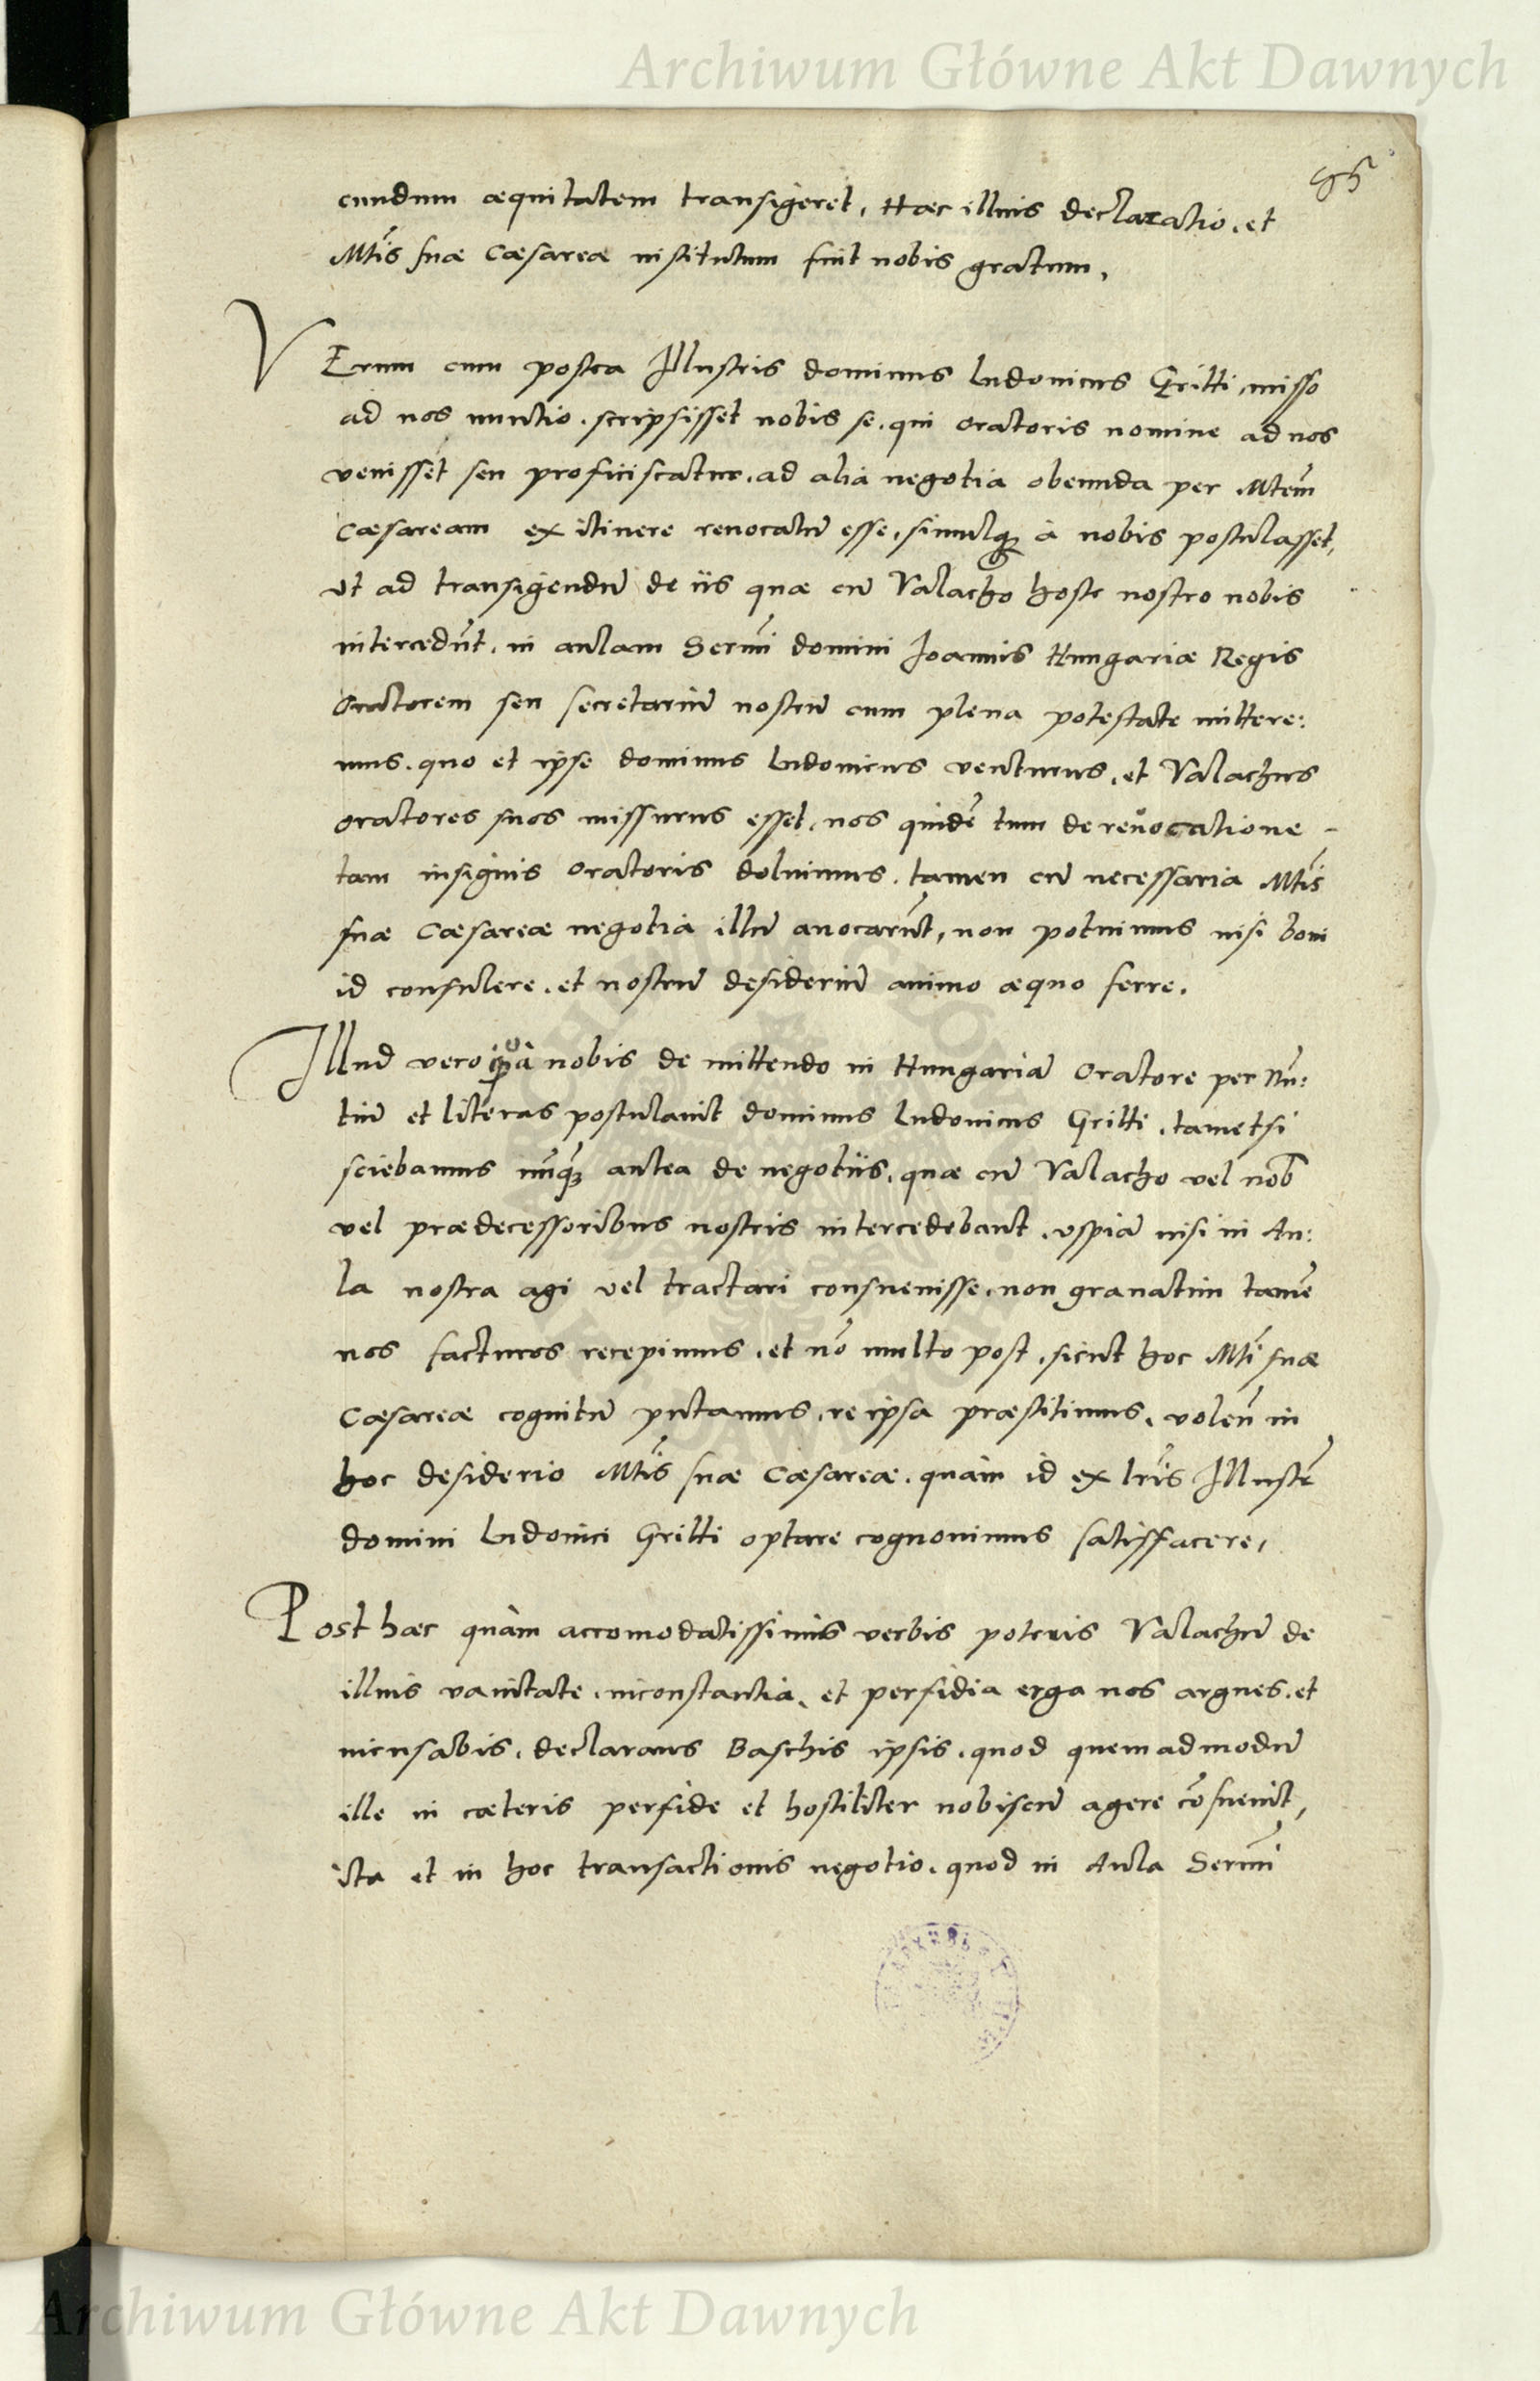 Archiwum Główne Akt Dawnych
cundum æquitatem transigeret, Hæc illius declaratio, et
Mtis suæ Cæsareæ institutum fuit nobis gratum,
VErum cum postea Illustris dominus Ludovicus Gritti, misso
ad nos nuntio, scripsisset nobis se, qui oratoris nomine ad nos
venisset seu proficiscatur, ad alia negotia obeunda per Mtem
Cæsaream ex itinere revocatũ esse, simulq₃ à nobis postulasset,
ut ad transigendũ de iis quæ cũ Valacho hoste nostro nobis
intercedũt, in aulam Sermi domini Joannis Hungariæ Regis
Oratorem seu secretariũ nostrũ cum plena potestate mittere:
mus, quo et ipse dominus Ludovicus venturus, et Valachus
oratores suos missurus esset, nos quidẽ tum de revocatione
tam insignis oratoris doluimus, tamen cũ necessaria Mtis
suæ Cæsareæ negotia illũ avocarũt, non potuimus nisi boni
id consulere, et nostrũ desideriũ animo æquo ferre.
Illud vero à nobis de mittendo in Hungariã Oratore per Nũ:
tiũ et literas postulavit dominus Ludovicus Gritti, tametsi
sciebamus nũq₃ antea de negotiis, quæ cũ Valacho vel nob̃
vel prædecessoribus nostris intercedebant, uspiã nisi in Au:
la nostra agi vel tractari consuevisse, non gravatim tamẽ
nos facturos recepimus, et nõ multo post, sicut hoc Mti suæ
Cæsareæ cognitũ putamus, re ipsa præstitimus, voleñ in
hoc desiderio Mtis suæ Cæsareæ, quàm id ex lris Illustr̃
domini Ludovici Gritti optare cognovimus satisfacere,
Post hæc quàm accomodatissimis verbis poteris Valachũ de
illius vanitate, inconstantia, et perfidia erga nos argues, et
incusabis, declarans Baschis ipsis, quod quemadmodũ
ille in cæteris perfide et hostiliter nobiscũ agere cõsuevit,
ita et in hoc transactionis negotio, quod in Aula Sermi
Archiwum Główne Akt Dawnych